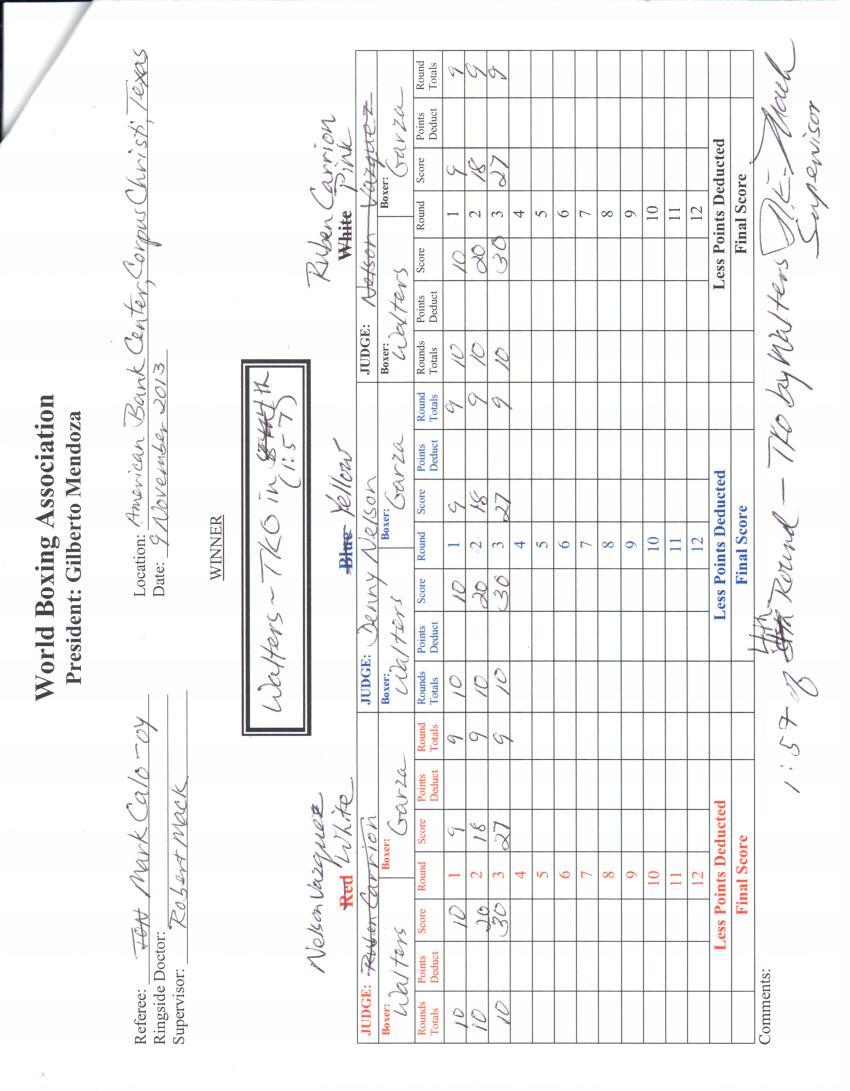 World Boxing Association
President: Gilberto Mendoza
Referee: Mark Calo-oy
Ringside Doctor:
Supervisor: Robert Mack
Location: American Bank Center, Corpus Christi, Texas
Date: 9 November 2013
WINNER
Walters - TKO in 4th
(1:57)
Nelson Vazquez
Red White
Blue Yellow
Ruben Carrion
White Pink
JUDGE: Ruben Carrion JUDGE: Denny Nelson JUDGE: Nelson Vazquez
Boxer: Walters Boxer: Garza Boxer: Walters Boxer: Garza Boxer: Walters Boxer: Garza
Rounds Totals Points Deduct Score Round Score Points Deduct Round Totals Rounds Totals Points Deduct Score Round Score Points Deduct Round Totals Rounds Totals Points Deduct Score Round Score Points Deduct Round Totals
10 10 1 9 9 10 10 1 9 9 10 10 1 9 9
10 20 2 18 9 10 20 2 18 9 10 20 2 18 9
10 30 3 27 9 10 30 3 27 9 10 30 3 27 9
4 4 4
5 5 5
6 6 6
7 7 7
8 8 8
9 9 9
10 10 10
11 11 11
12 12 12
Less Points Deducted Less Points Deducted Less Points Deducted
Final Score Final Score Final Score
Comments:
1:57 of 4th Round - TKO by Walters Mack
Supervisor